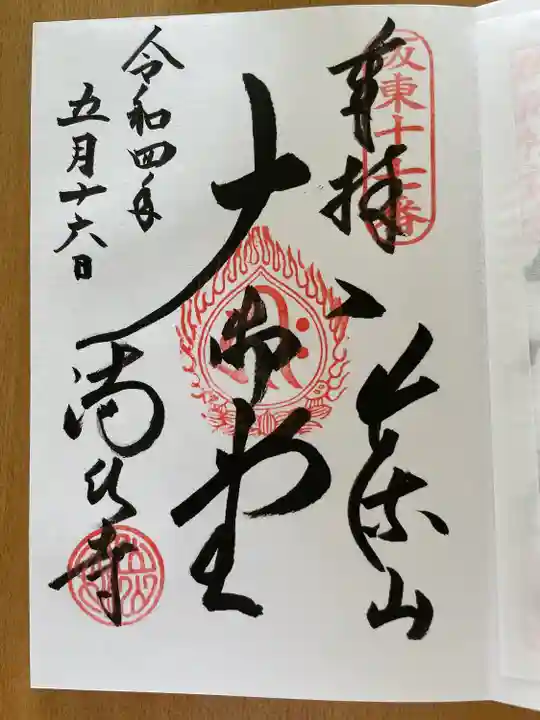 坂東十七番
奉拝
出流山
大御堂
満願寺
令和四年
五月十六日